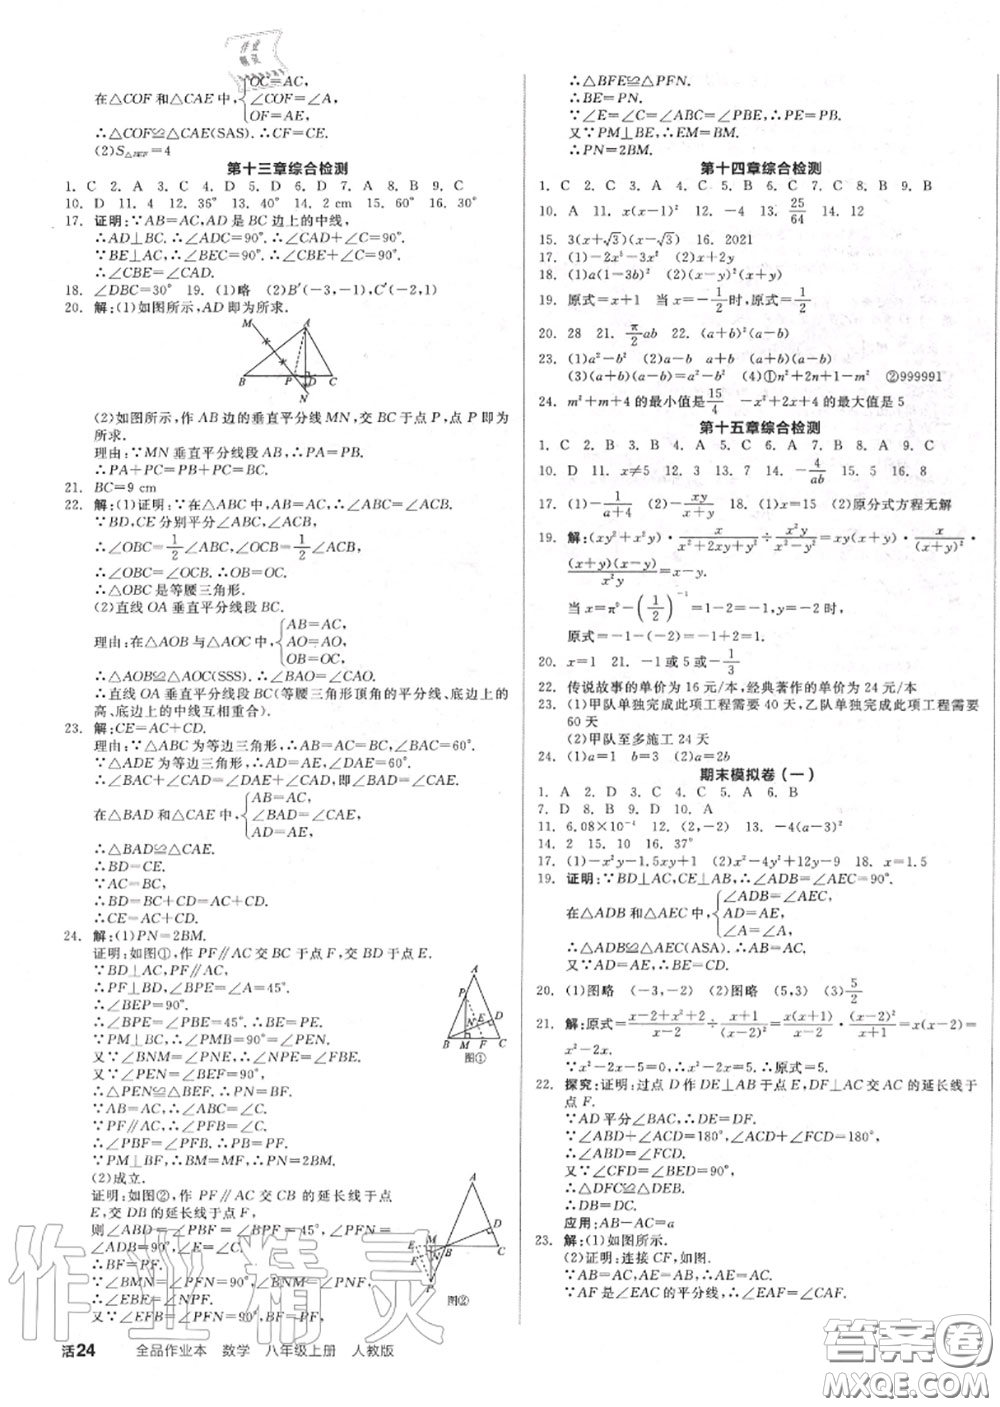 作业
精灵
OC=AC,
在△COF和△CAE中,∠COF=∠A,
OF=AE,
∴△COF≌△CAE(SAS).∴CF=CE.
(2)S△BEF=4
第十三章综合检测
1. C 2. A 3. C 4. D 5. D 6. D 7. A 8. B 9. C
10. D 11. 4 12. 36° 13. 40° 14. 2 cm 15. 60° 16. 30°
17. 证明:∵AB=AC,AD是BC边上的中线,
∴AD⊥BC.∴∠ADC=90°.∴∠CAD+∠C=90°.
∵BE⊥AC,∴∠BEC=90°.∴∠CBE+∠C=90°.
∴∠CBE=∠CAD.
18. ∠DBC=30° 19. (1)略 (2)B′(-3,-1),C′(-2,1)
20. 解:(1)如图所示,AD即为所求.
M A
B P D C
N
(2)如图所示,作AB边的垂直平分线MN,交BC于点P,点P即为
所求.
理由:∵MN垂直平分线段AB,∴PA=PB.
∴PA+PC=PB+PC=BC.
21. BC=9 cm
22. 解:(1)证明:∵在△ABC中,AB=AC,∴∠ABC=∠ACB.
∵BD,CE分别平分∠ABC,∠ACB,
∴∠OBC=1/2∠ABC,∠OCB=1/2∠ACB,
∴∠OBC=∠OCB.∴OB=OC.
∴△OBC是等腰三角形.
(2)直线OA垂直平分线段BC.
AB=AC,
理由:在△AOB与△AOC中,AO=AO,
OB=OC,
∴△AOB≌△AOC(SSS).∴∠BAO=∠CAO.
∴直线OA垂直平分线段BC(等腰三角形顶角的平分线、底边上的
高、底边上的中线互相重合).
23. 解:CE=AC+CD.
理由:∵△ABC为等边三角形,∴AB=AC=BC,∠BAC=60°.
∵△ADE为等边三角形,∴AD=AE,∠DAE=60°.
∴∠BAC+∠CAD=∠DAE+∠CAD,即∠BAD=∠CAE.
AB=AC,
在△BAD和△CAE中,∠BAD=∠CAE,
AD=AE,
∴△BAD≌△CAE.
∴BD=CE.
∵AC=BC,
∴BD=BC+CD=AC+CD.
∴CE=AC+CD.
24. 解:(1)PN=2BM.
证明:如图①,作PF∥AC交BC于点F,交BD于点E.
∵BD⊥AC,PF∥AC,
∴PF⊥BD,∠BPE=∠A=45°.
∴∠BEP=90°.
∴∠PBE=∠BPE=45°.∴BE=PE.
∵PM⊥BC,∴∠BMP=90°=∠PEN.
又∵∠BNM=∠PNE,∴∠EPN=∠FBE.
又∵∠PEN=∠BEF=90°,
∴△PEN≌△BEF.∴PN=BF.
∵AB=AC,∴∠ABC=∠C.
∵PF∥AC,∴∠PFB=∠C.
∴∠PBF=∠PFB.∴PB=PF.
∵PM⊥BF,∴BM=MF.∴PN=2BM.
A
P
N E D
B M F C
图①
(2)成立.
证明:如图②,作PF∥AC交CB的延长线于点
E,交DB的延长线于点F,
则∠ABD=∠PBF=∠BPF=45°,∠PFN=
∠ADB=90°,∠E=∠C.
∴BF=PF.
∵∠BMN=∠PFN=90°,∠BNM=∠PNF,
∴∠EBF=∠NPF.
又∵∠EFB=∠PFN=90°,BF=PF,
A
D
M B C
E
F
P
图②
∴△BFE≌△PFN.
∴BE=PN.
∵∠E=∠C=∠ABC=∠PBE,∴PE=PB.
又∵PM⊥BE,∴EM=BM.
∴PN=2BM.
第十四章综合检测
1. C 2. C 3. C 4. A 5. D 6. C 7. B 8. B 9. B
10. A 11. x(x-1)² 12. -4 13. 25/64 14. 12
15. 3(x+√3)(x-√3) 16. 2021
17. (1)-2x⁴-3x² (2)x+2y
18. (1)a(1-3b)² (2)(x-y)²(x+y)
19. 原式=x+1 当x=-1/2时,原式=1/2
20. 28 21. π/2ab 22. (a+b)²(a-b)
23. (1)a²-b² (2)a-b a+b (a+b)(a-b)
(3)(a+b)(a-b)=a²-b² (4)①n²+2n+1-m² ②999991
24. m²+m+4的最小值是15/4 -x²+2x+4的最大值是5
第十五章综合检测
1. C 2. B 3. B 4. A 5. C 6. A 7. B 8. A 9. C
10. D 11. x≠5 12. 3 13. 7 14. -4/ab 15. 5 16. 8
17. (1)-1/(a+4) (2)-xy/(x+y) 18. (1)x=15 (2)原分式方程无解
19. 解:(xy²+x²y)·x/(x²+2xy+y²)÷x²y/(x²-y²)=xy(x+y)·x/(x+y)²·
(x+y)(x-y)/x²y=x-y.
当x=π⁰-(1/2)⁻¹=1-2=-1,y=-2时,
原式=-1-(-2)=-1+2=1.
20. x=1 21. -1或5或-1/3
22. 传说故事的单价为16元/本,经典著作的单价为24元/本
23. (1)甲队单独完成此项工程需要40天,乙队单独完成此项工程需要
60天
(2)甲队至多施工24天
24. (1)a=1 b=3 (2)a=2b
期末模拟卷(一)
1. A 2. D 3. C 4. C 5. A 6. B
7. D 8. B 9. D 10. A
11. 6.08×10⁻⁴ 12. (2,-2) 13. -4(a-3)²
14. 2 15. 10 16. 37°
17. (1)-x²y-1.5xy+1 (2)x²-4y²+12y-9 18. x=1.5
19. 证明:∵BD⊥AC,CE⊥AB,∴∠ADB=∠AEC=90°.
∠ADB=∠AEC,
在△ADB和△AEC中,AD=AE,
∠A=∠A,
∴△ADB≌△AEC(ASA).∴AB=AC.
又∵AD=AE,∴BE=CD.
20. (1)图略 (-3,-2) (2)图略 (5,3) (3)5/2
21. 解:原式=(x-2+x²+2)/(x-2)÷(x+1)/(x-2)²=x(x+1)/(x-2)·(x-2)²/(x+1)=x(x-2)=
x²-2x.
∵x²-2x-5=0,∴x²-2x=5.∴原式=5.
22. 探究:证明:过点D作DE⊥AB于点E,DF⊥AC交AC的延长线于
点F.
∵AD平分∠BAC,∴DE=DF.
∵∠ABD+∠ACD=180°,∠ACD+∠FCD=180°,
∴∠ABD=∠FCD.
又∵∠CFD=∠BED=90°,
∴△DFC≌△DEB.
∴DB=DC.
应用:AB-AC=a
23. 解:(1)如图所示.
(2)证明:连接CF,如图.
∵AB=AC,AE=AB,∴AE=AC.
∵AF是∠EAC的平分线,∴∠EAF=∠CAF.
活24 全品作业本 数学 八年级上册 人教版
作业精灵
答案圈
MXQE.COM